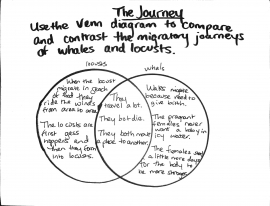 The Journey
Use the Venn diagram to compare
and contrast the migratory journeys
of whales and locusts.
locusts
whale
When the locust
migrate in
of food they
ride the winds
from area to area
The locusts are
first
hoppers and
then they form
into locusts.
They
travel a lot.
They both die.
They both move
a place to another.
because need to
give birth.
The pregnant
females never
want a baby in
icy water.
The females stay
a little more days
for the baby to
be more strong